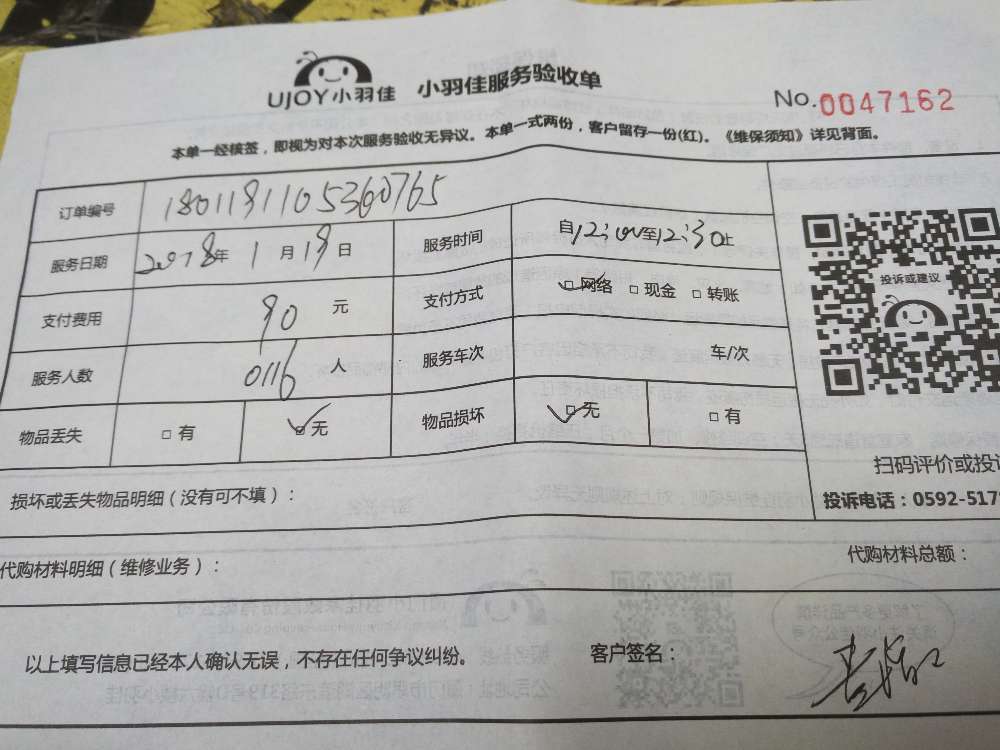 UJOY小羽佳 小羽佳服务验收单 No.0047162
本单一经核签，即视为对本次服务验收无异议。本单一式两份，客户留存一份(红)。《维保须知》详见背面。
订单编号 1801181105360765
服务日期 2018年1月18日 服务时间 自12:00至12:30止
支付费用 80元 支付方式 □网络 □现金 □转账
服务人数 0116人 服务车次 车/次
物品丢失 □有 □无 物品损坏 □无 □有
投诉或建议
扫码评价或投诉
损坏或丢失物品明细（没有可不填）：
投诉电话：0592-517
代购材料明细（维修业务）： 代购材料总额：
以上填写信息已经本人确认无误，不存在任何争议纠纷。 客户签名：